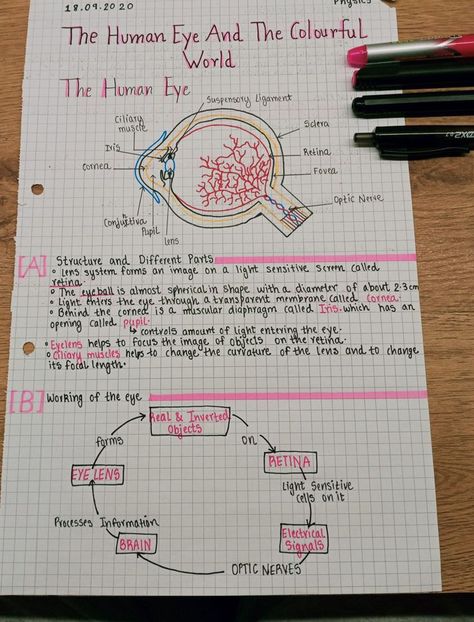 18.09.2020
Physics
The Human Eye And The Colourful
World
The Human Eye
Suspensory Ligament
Ciliary
muscle
Iris
Cornea
Conjuctiva
Pupil
Lens
Sclera
Retina
Fovea
Optic Nerve
[A] Structure and Different Parts
• Lens system forms an image on a light sensitive screen called
retina.
• The eyeball is almost spherical in shape with a diameter of about 2.3cm
• Light enters the eye through a transparent membrane called Cornea.
• Behind the cornea is a muscular diaphragm called Iris which has an
opening called pupil.
↳ controls amount of light entering the eye.
• Eyelens helps to focus the image of objects on the retina.
• Ciliary muscles helps to change the curvature of the lens and to change
its focal length.
[B] Working of the eye
Real & Inverted
Objects
on
RETINA
Light Sensitive
cells on it
Electrical
Signals
OPTIC NERVES
BRAIN
Processes Information
EYE LENS
forms